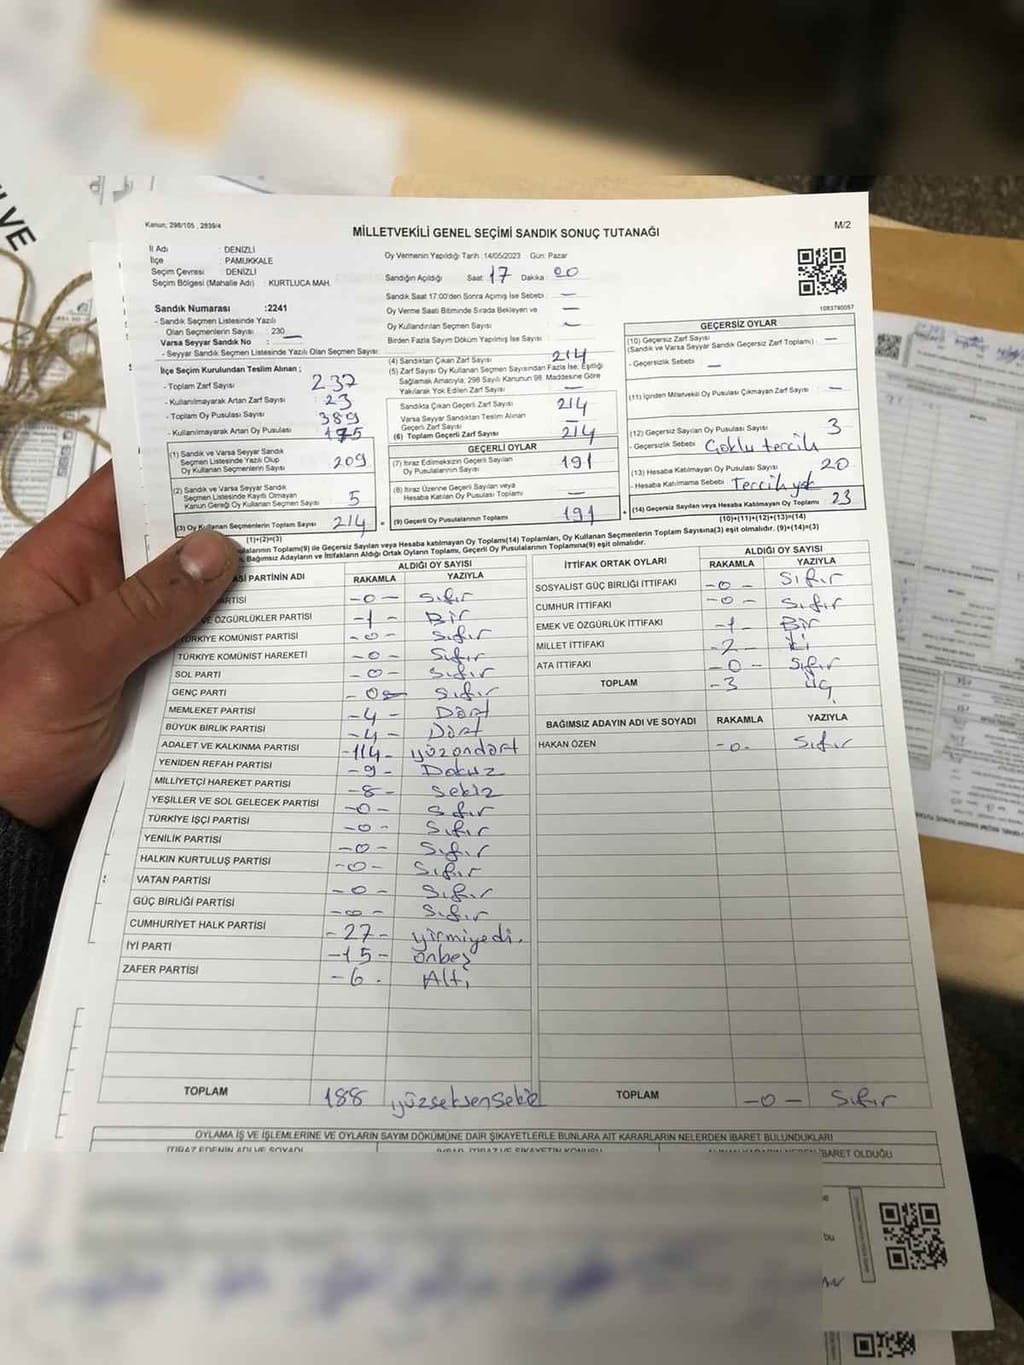 Kanun: 298/105 , 2839/4
MİLLETVEKİLİ GENEL SEÇİMİ SANDIK SONUÇ TUTANAĞI
M/2
İl Adı : DENİZLİ
İlçe : PAMUKKALE
Seçim Çevresi : DENİZLİ
Seçim Bölgesi (Mahalle Adı) KURTLUCA MAH.
Sandık Numarası :2241
- Sandık Seçmen Listesinde Yazılı
Olan Seçmenlerin Sayısı : 230
Varsa Seyyar Sandık No : —
- Seyyar Sandık Seçmen Listesinde Yazılı Olan Seçmen Sayısı:
İlçe Seçim Kurulundan Teslim Alınan ;
- Toplam Zarf Sayısı : 237
- Kullanılmayarak Artan Zarf Sayısı : 23
- Toplam Oy Pusulası Sayısı : 389
- Kullanılmayarak Artan Oy Pusulası : 175
(1) Sandık ve Varsa Seyyar Sandık
Seçmen Listesinde Yazılı Olup
Oy Kullanan Seçmenlerin Sayısı 209
(2) Sandık ve Varsa Seyyar Sandık
Seçmen Listesinde Kayıtlı Olmayan
Kanun Gereği Oy Kullanan Seçmen Sayısı 5
(3) Oy Kullanan Seçmenlerin Toplam Sayısı 214
(1)+(2)=(3)
Oy Vermenin Yapıldığı Tarih :14/05/2023 Gün: Pazar
Sandığın Açıldığı Saat: 17 Dakika : 00
Sandık Saat 17:00'den Sonra Açılmış İse Sebebi : —
Oy Verme Saati Bitiminde Sırada Bekleyen ve
Oy Kullandırılan Seçmen Sayısı : —
Birden Fazla Sayım Döküm Yapılmış İse Sayısı : —
(4) Sandıktan Çıkan Zarf Sayısı 214
(5) Zarf Sayısı Oy Kullanan Seçmen Sayısından Fazla İse, Eşitliği
Sağlamak Amacıyla, 298 Sayılı Kanunun 98. Maddesine Göre
Yakılarak Yok Edilen Zarf Sayısı : —
Sandıkta Çıkan Geçerli Zarf Sayısı 214
Varsa Seyyar Sandıktan Teslim Alınan
Geçerli Zarf Sayısı —
(6) Toplam Geçerli Zarf Sayısı 214
GEÇERLİ OYLAR
(7) İtiraz Edilmeksizin Geçerli Sayılan
Oy Pusulalarının Sayısı 191
(8) İtiraz Üzerine Geçerli Sayılan veya
Hesaba Katılan Oy Pusulası Toplamı —
(9) Geçerli Oy Pusulalarının Toplamı 191
1083780057
GEÇERSİZ OYLAR
(10) Geçersiz Zarf Sayısı
(Sandık ve Varsa Seyyar Sandık Geçersiz Zarf Toplamı) : —
- Geçersizlik Sebebi : —
(11) İçinden Milletvekili Oy Pusulası Çıkmayan Zarf Sayısı : —
(12) Geçersiz Sayılan Oy Pusulası Sayısı : 3
- Geçersizlik Sebebi : Çoklu tercih
(13) Hesaba Katılmayan Oy Pusulası Sayısı : 20
- Hesaba Katılmama Sebebi : Tercih yok
(14) Geçersiz Sayılan veya Hesaba Katılmayan Oy Toplamı 23
(10)+(11)+(12)+(13)=(14)
Pusulalarının Toplamı(9) ile Geçersiz Sayılan veya Hesaba katılmayan Oy Toplamı(14) Toplamları, Oy Kullanan Seçmenlerin Toplam Sayısına(3) eşit olmalıdır. (9)+(14)=(3)
Bağımsız Adayların ve İttifakların Aldığı Ortak Oyların Toplamı, Geçerli Oy Pusulalarının Toplamına(9) eşit olmalıdır.
PARTİNİN ADI ALDIĞI OY SAYISI
RAKAMLA YAZIYLA
PARTİSİ -0- Sıfır
VE ÖZGÜRLÜKLER PARTİSİ -1- Bir
TÜRKİYE KOMÜNİST PARTİSİ -0- Sıfır
TÜRKİYE KOMÜNİST HAREKETİ -0- Sıfır
SOL PARTİ -0- Sıfır
GENÇ PARTİ -0- Sıfır
MEMLEKET PARTİSİ -4- Dört
BÜYÜK BİRLİK PARTİSİ -4- Dört
ADALET VE KALKINMA PARTİSİ -114- yüzondört
YENİDEN REFAH PARTİSİ -9- Dokuz
MİLLİYETÇİ HAREKET PARTİSİ -8- Sekiz
YEŞİLLER VE SOL GELECEK PARTİSİ -0- Sıfır
TÜRKİYE İŞÇİ PARTİSİ -0- Sıfır
YENİLİK PARTİSİ -0- Sıfır
HALKIN KURTULUŞ PARTİSİ -0- Sıfır
VATAN PARTİSİ -0- Sıfır
GÜÇ BİRLİĞİ PARTİSİ -0- Sıfır
CUMHURİYET HALK PARTİSİ -27- yirmiyedi.
İYİ PARTİ -15- onbeş
ZAFER PARTİSİ -6- Altı
TOPLAM 188 yüzseksensekiz
İTTİFAK ORTAK OYLARI ALDIĞI OY SAYISI
RAKAMLA YAZIYLA
SOSYALİST GÜÇ BİRLİĞİ İTTİFAKI -0- Sıfır
CUMHUR İTTİFAKI -0- Sıfır
EMEK VE ÖZGÜRLÜK İTTİFAKI -1- Bir
MİLLET İTTİFAKI -2- iki
ATA İTTİFAKI -0- Sıfır
TOPLAM -3 üç
BAĞIMSIZ ADAYIN ADI VE SOYADI RAKAMLA YAZIYLA
HAKAN ÖZEN -0- Sıfır
TOPLAM -0- Sıfır
OYLAMA İŞ VE İŞLEMLERİNE VE OYLARIN SAYIM DÖKÜMÜNE DAİR ŞİKAYETLERLE BUNLARA AİT KARARLARIN NELERDEN İBARET BULUNDUKLARI
İTİRAZ EDENİN ADI VE SOYADI
İBARET OLDUĞU